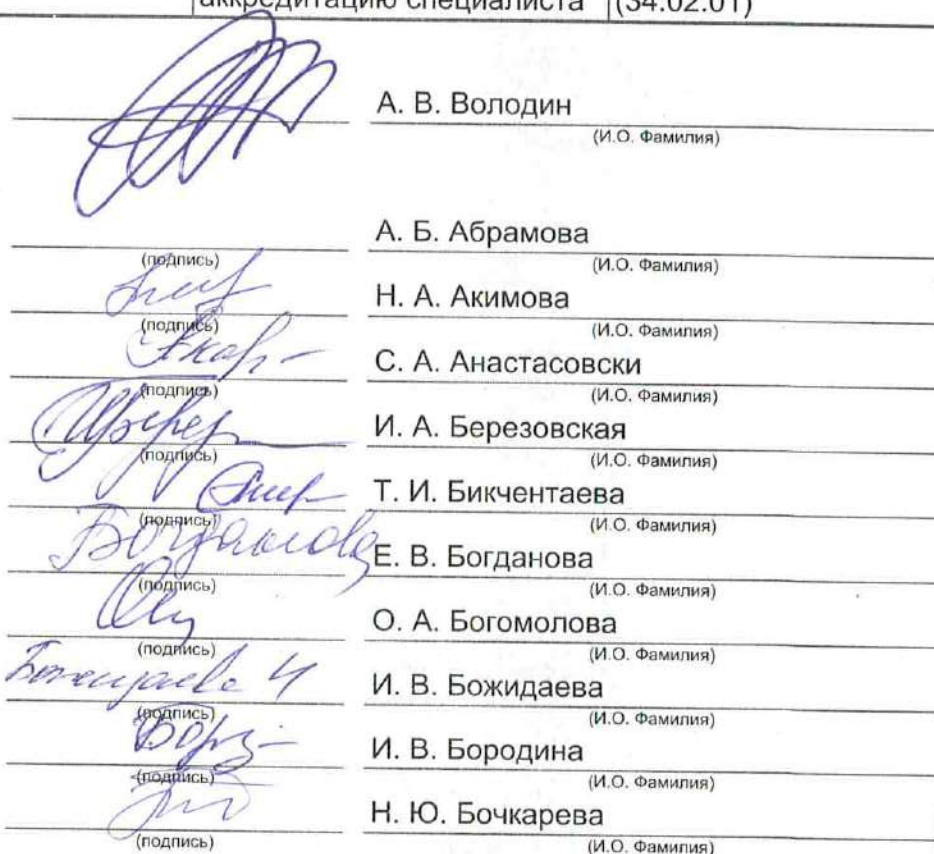 аккредитацию специалиста (34.02.01)
А. В. Володин
(И.О. Фамилия)
А. Б. Абрамова
(подпись) (И.О. Фамилия)
Н. А. Акимова
(подпись) (И.О. Фамилия)
С. А. Анастасовски
(подпись) (И.О. Фамилия)
И. А. Березовская
(подпись) (И.О. Фамилия)
Т. И. Бикчентаева
(подпись) (И.О. Фамилия)
Богданова Е. В. Богданова
(подпись) (И.О. Фамилия)
О. А. Богомолова
(подпись) (И.О. Фамилия)
И. В. Божидаева
(подпись) (И.О. Фамилия)
И. В. Бородина
(подпись) (И.О. Фамилия)
Н. Ю. Бочкарева
(подпись) (И.О. Фамилия)